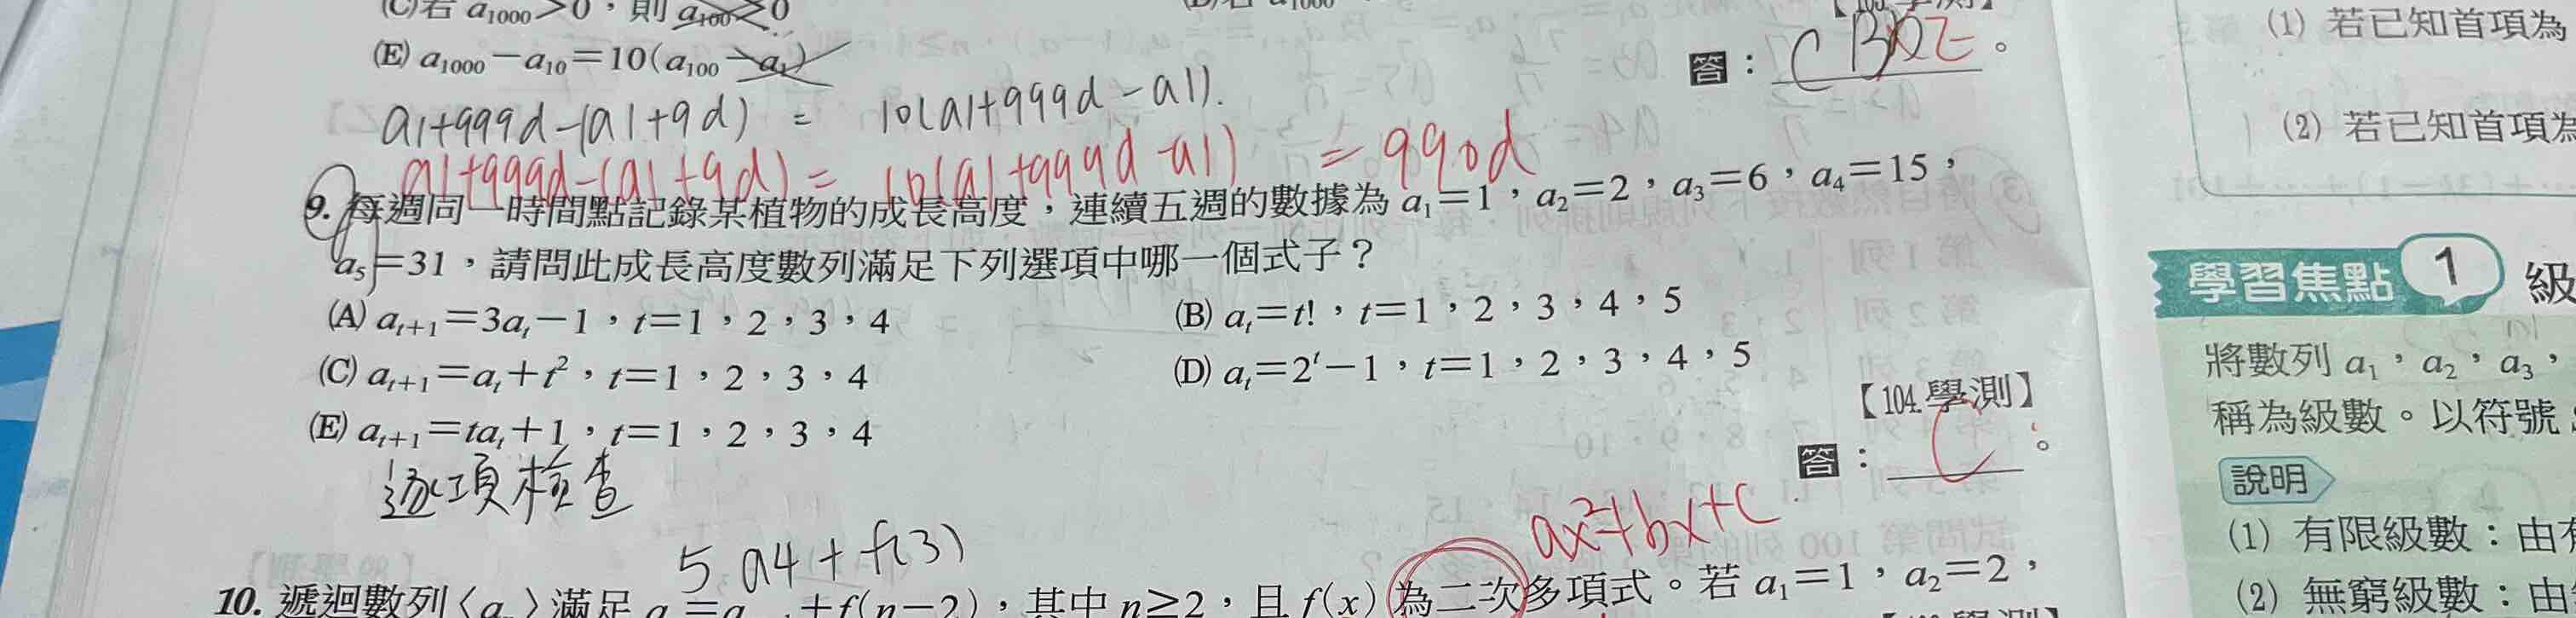 (C)若 a₁₀₀₀>0,則 a₁₀₀>0
(E) a₁₀₀₀−a₁₀=10(a₁₀₀−a₁)
答:CBDE。
a1+999d−(a1+9d) = 10(a1+999d−a1).
a1+999d−(a1+9d) = 10(a1+999d−a1) = 990d
9. 每週同一時間點記錄某植物的成長高度,連續五週的數據為 a₁=1,a₂=2,a₃=6,a₄=15,
a₅=31,請問此成長高度數列滿足下列選項中哪一個式子?
(A) aₜ₊₁=3aₜ−1,t=1,2,3,4
(B) aₜ=t!,t=1,2,3,4,5
(C) aₜ₊₁=aₜ+t²,t=1,2,3,4
(D) aₜ=2ᵗ−1,t=1,2,3,4,5
【104.學測】
(E) aₜ₊₁=taₜ+1,t=1,2,3,4
答:C。
逐項檢查
ax²+bx+c
5 a4+f(3)
10. 遞迴數列〈aₙ〉滿足 aₙ=aₙ₋₁+f(n−2),其中 n≥2,且 f(x) 為二次多項式。若 a₁=1,a₂=2,
(1) 若已知首項為
(2) 若已知首項為
學習焦點 1 級
將數列 a₁,a₂,a₃,
稱為級數。以符號
說明
(1) 有限級數:由有
(2) 無窮級數:由